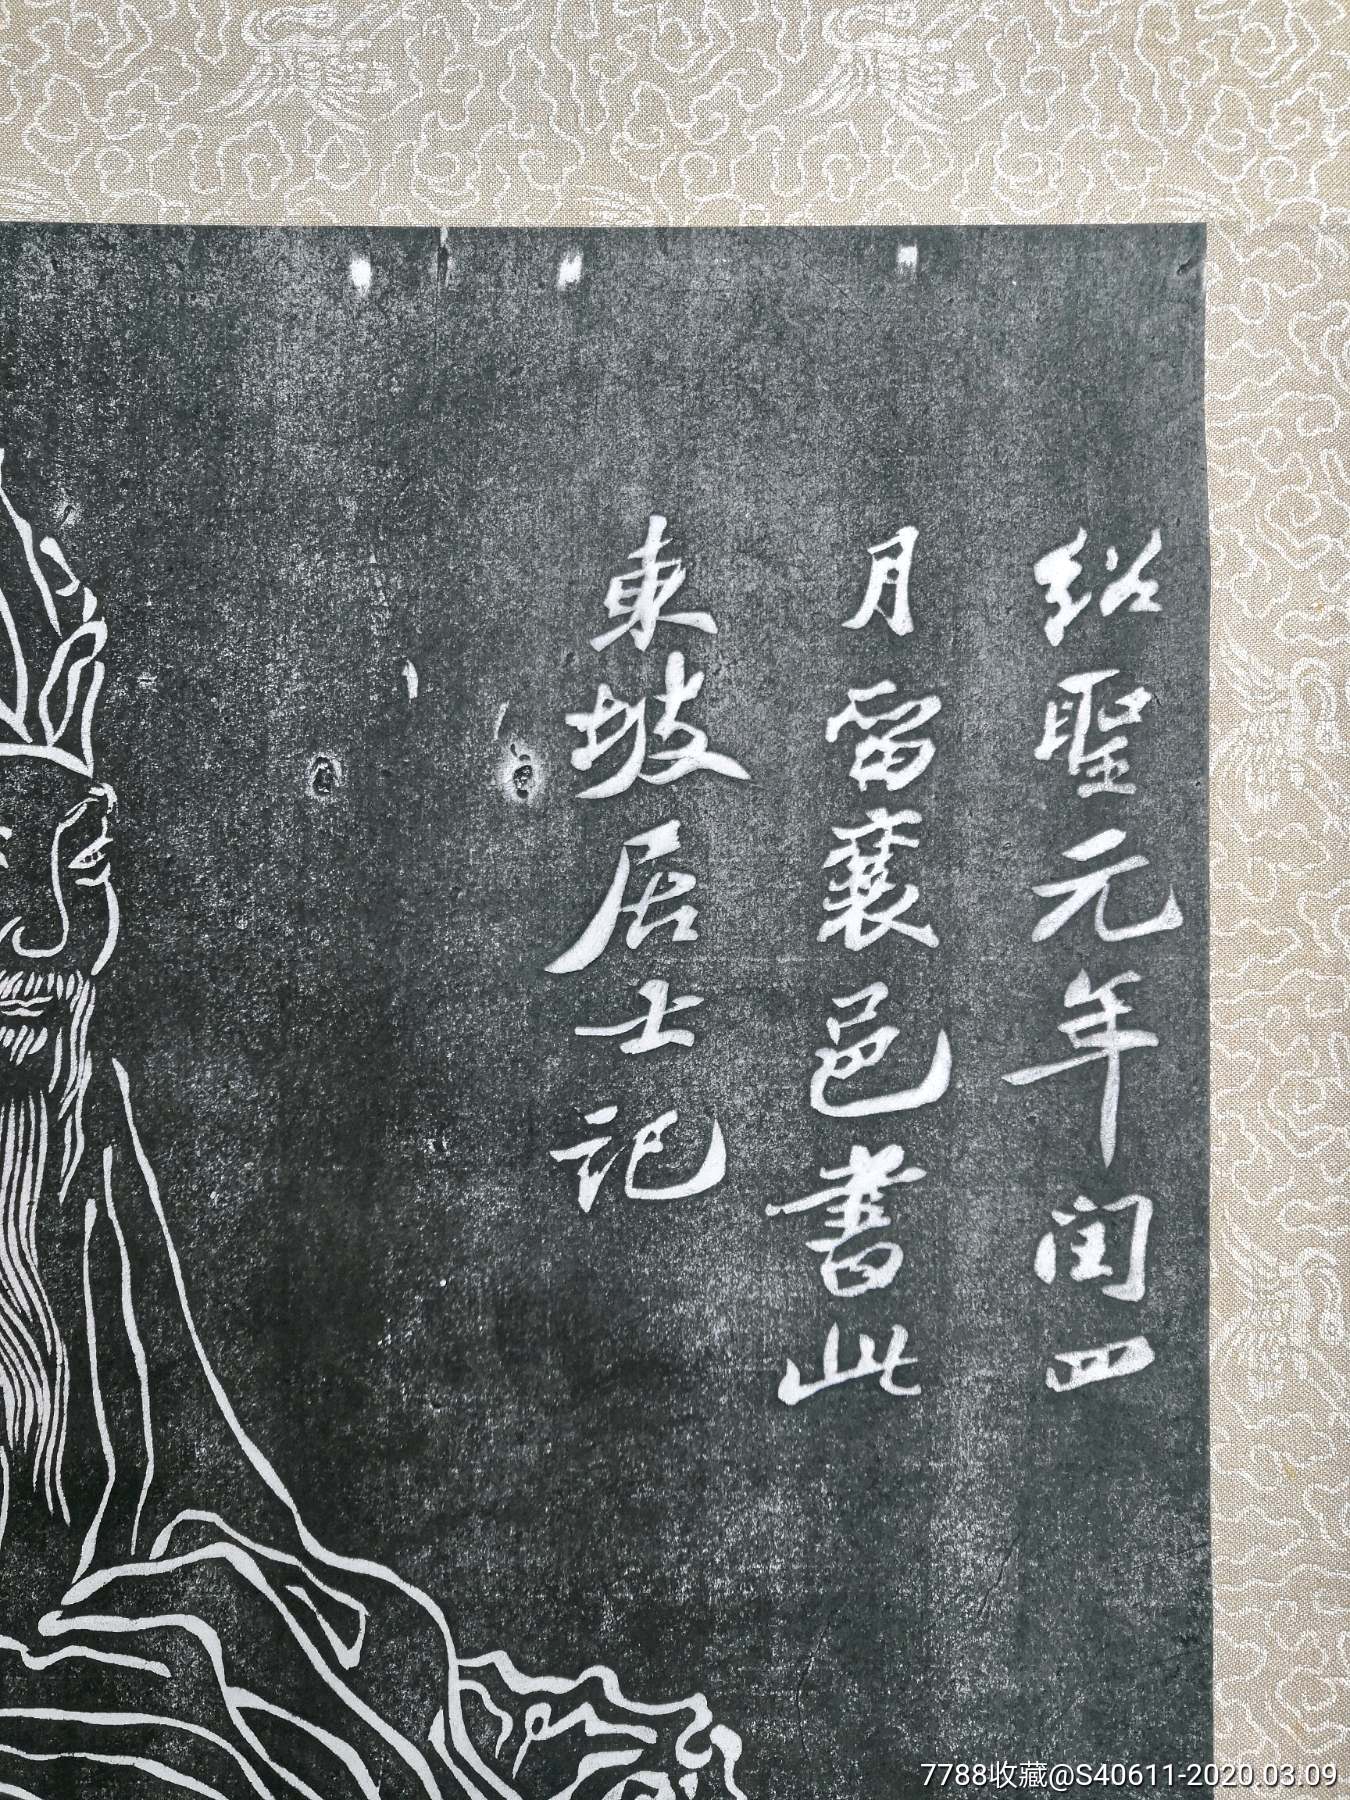 紹聖元年閏四
月留襄邑書此
東坡居士記
7788收藏@S40611-2020.03.09